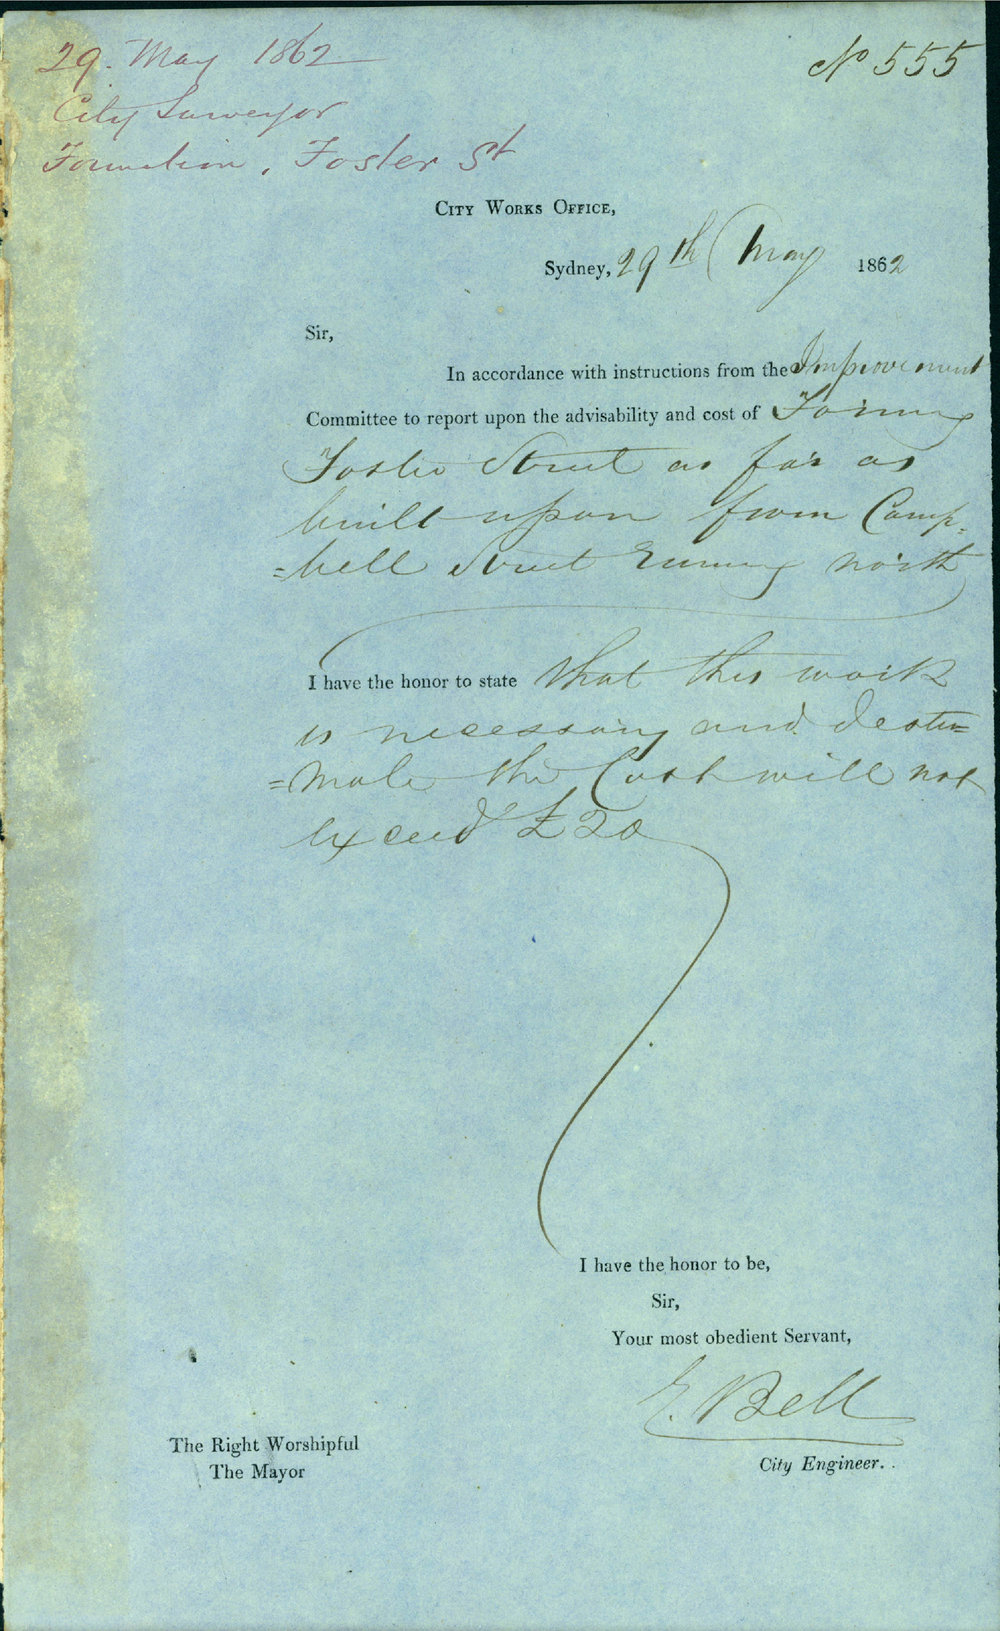 29. May 1862
City Surveyor
Formation, Foster St
No 555
CITY WORKS OFFICE,
Sydney, 29th May 1862
Sir,
In accordance with instructions from the Improvement
Committee to report upon the advisability and cost of Forming
Foster Street as far as
built upon from Camp-
=bell Street running north
I have the honor to state that this work
is necessary and I esti=
=mate the Cost will not
exceed £20
I have the honor to be,
Sir,
Your most obedient Servant,
E. Bell
City Engineer.
The Right Worshipful
The Mayor